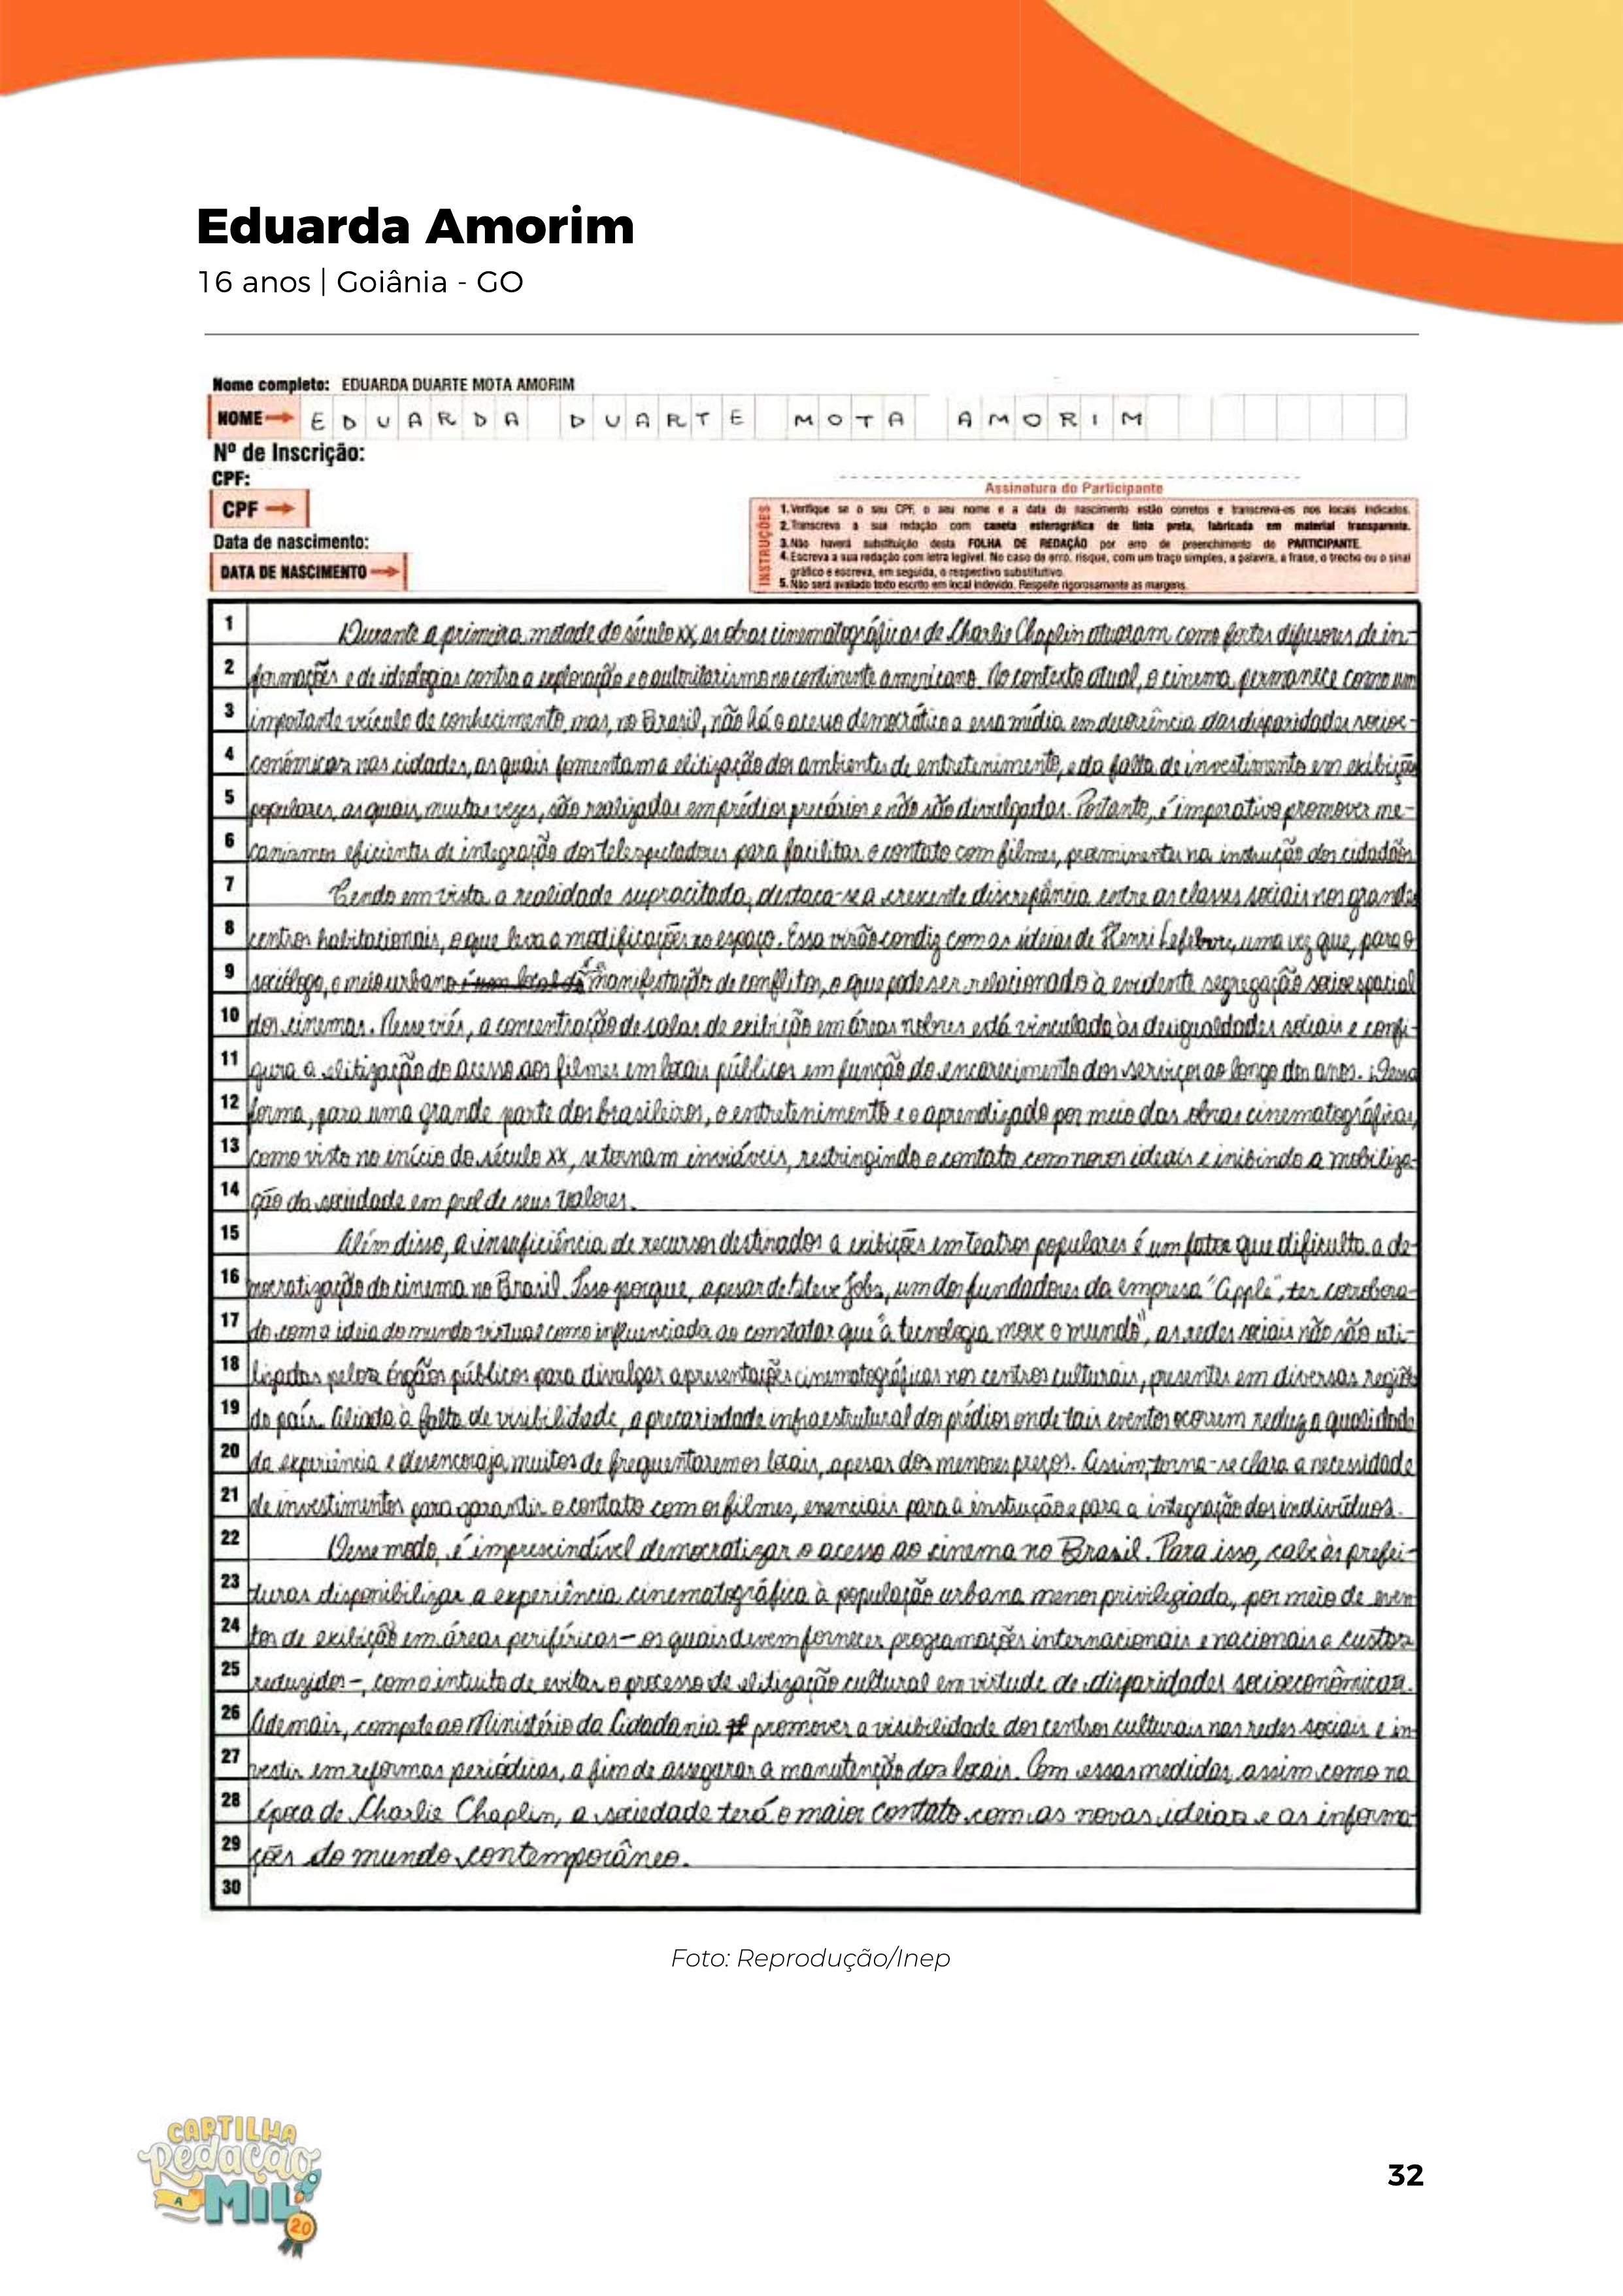 Eduarda Amorim
16 anos | Goiânia - GO
Nome completo: EDUARDA DUARTE MOTA AMORIM
NOME → EDUARDA DUARTE MOTA AMORIM
Nº de Inscrição:
CPF:
Assinatura do Participante
CPF →
Data de nascimento:
DATA DE NASCIMENTO →
INSTRUÇÕES
1. Verifique se o seu CPF, o seu nome e a data de nascimento estão corretos e transcreva-os nos locais indicados.
2. Transcreva a sua redação com caneta esferográfica de tinta preta, fabricada em material transparente.
3. Não haverá substituição desta FOLHA DE REDAÇÃO por erro de preenchimento do PARTICIPANTE.
4. Escreva a sua redação com letra legível. No caso de erro, risque, com um traço simples, a palavra, a frase, o trecho ou o sinal
gráfico e escreva, em seguida, o respectivo substitutivo.
5. Não será avaliado texto escrito em local indevido. Respeite rigorosamente as margens.
1 Durante a primeira metade do século XX, as obras cinematográficas de Charlie Chaplin atuaram como fortes difusores de in-
2 formações e de ideologias contra a exploração e o autoritarismo no continente americano. No contexto atual, o cinema permanece como um
3 importante veículo de conhecimento, mas, no Brasil, não há o acesso democrático a essa mídia em decorrência das disparidades socioe-
4 conômicas nas cidades, as quais fomentam a elitização dos ambientes de entretenimento, e da falta de investimento em exibições
5 populares, as quais, muitas vezes, são realizadas em prédios precários e não são divulgadas. Portanto, é imperativo promover me-
6 canismos eficientes de integração dos telespectadores para facilitar o contato com filmes, proeminentes na instrução dos cidadãos.
7 Tendo em vista a realidade supracitada, destaca-se a crescente discrepância entre as classes sociais nos grandes
8 centros habitacionais, o que leva a modificações no espaço. Essa visão condiz com as ideias de Henri Lefebvre, uma vez que, para o
9 sociólogo, o meio urbano é a manifestação de conflitos, o que pode ser relacionado à evidente segregação socioespacial
10 dos cinemas. Nesse viés, a concentração de salas de exibição em áreas nobres está vinculada às desigualdades sociais e confi-
11 gura a elitização do acesso aos filmes em locais públicos em função do encarecimento dos serviços ao longo dos anos. Dessa
12 forma, para uma grande parte dos brasileiros, o entretenimento e o aprendizado por meio das obras cinematográficas,
13 como visto no início do século XX, se tornam inviáveis, restringindo o contato com novos ideais e inibindo a mobiliza-
14 ção da sociedade em prol de seus valores.
15 Além disso, a insuficiência de recursos destinados a exibições em teatros populares é um fator que dificulta a de-
16 mocratização do cinema no Brasil. Isso porque, apesar de Steve Jobs, um dos fundadores da empresa "Apple", ter corrobora-
17 do com a ideia do mundo virtual como influenciador ao constatar que "a tecnologia move o mundo", as redes sociais não são uti-
18 lizadas pelos órgãos públicos para divulgar apresentações cinematográficas nos centros culturais, presentes em diversas regiões
19 do país. Aliada à falta de visibilidade, a precariedade infraestrutural dos prédios onde tais eventos ocorrem reduz a qualidade
20 da experiência e desencoraja muitos de frequentarem os locais, apesar dos menores preços. Assim, torna-se clara a necessidade
21 de investimentos para garantir o contato com os filmes, essenciais para a instrução e para a integração dos indivíduos.
22 Desse modo, é imprescindível democratizar o acesso ao cinema no Brasil. Para isso, cabe às prefei-
23 turas disponibilizar a experiência cinematográfica à população urbana menos privilegiada, por meio de even-
24 tos de exibição em áreas periféricas – os quais devem fornecer programações internacionais e nacionais a custos
25 reduzidos –, com o intuito de evitar o processo de elitização cultural em virtude de disparidades socioeconômicas.
26 Ademais, compete ao Ministério da Cidadania promover a visibilidade dos centros culturais nas redes sociais e in-
27 vestir em reformas periódicas, a fim de assegurar a manutenção dos locais. Com essas medidas, assim como na
28 época de Charlie Chaplin, a sociedade terá o maior contato com as novas ideias e as informa-
29 ções do mundo contemporâneo.
30
Foto: Reprodução/Inep
CARTILHA
Redação
A MIL
2.0
32